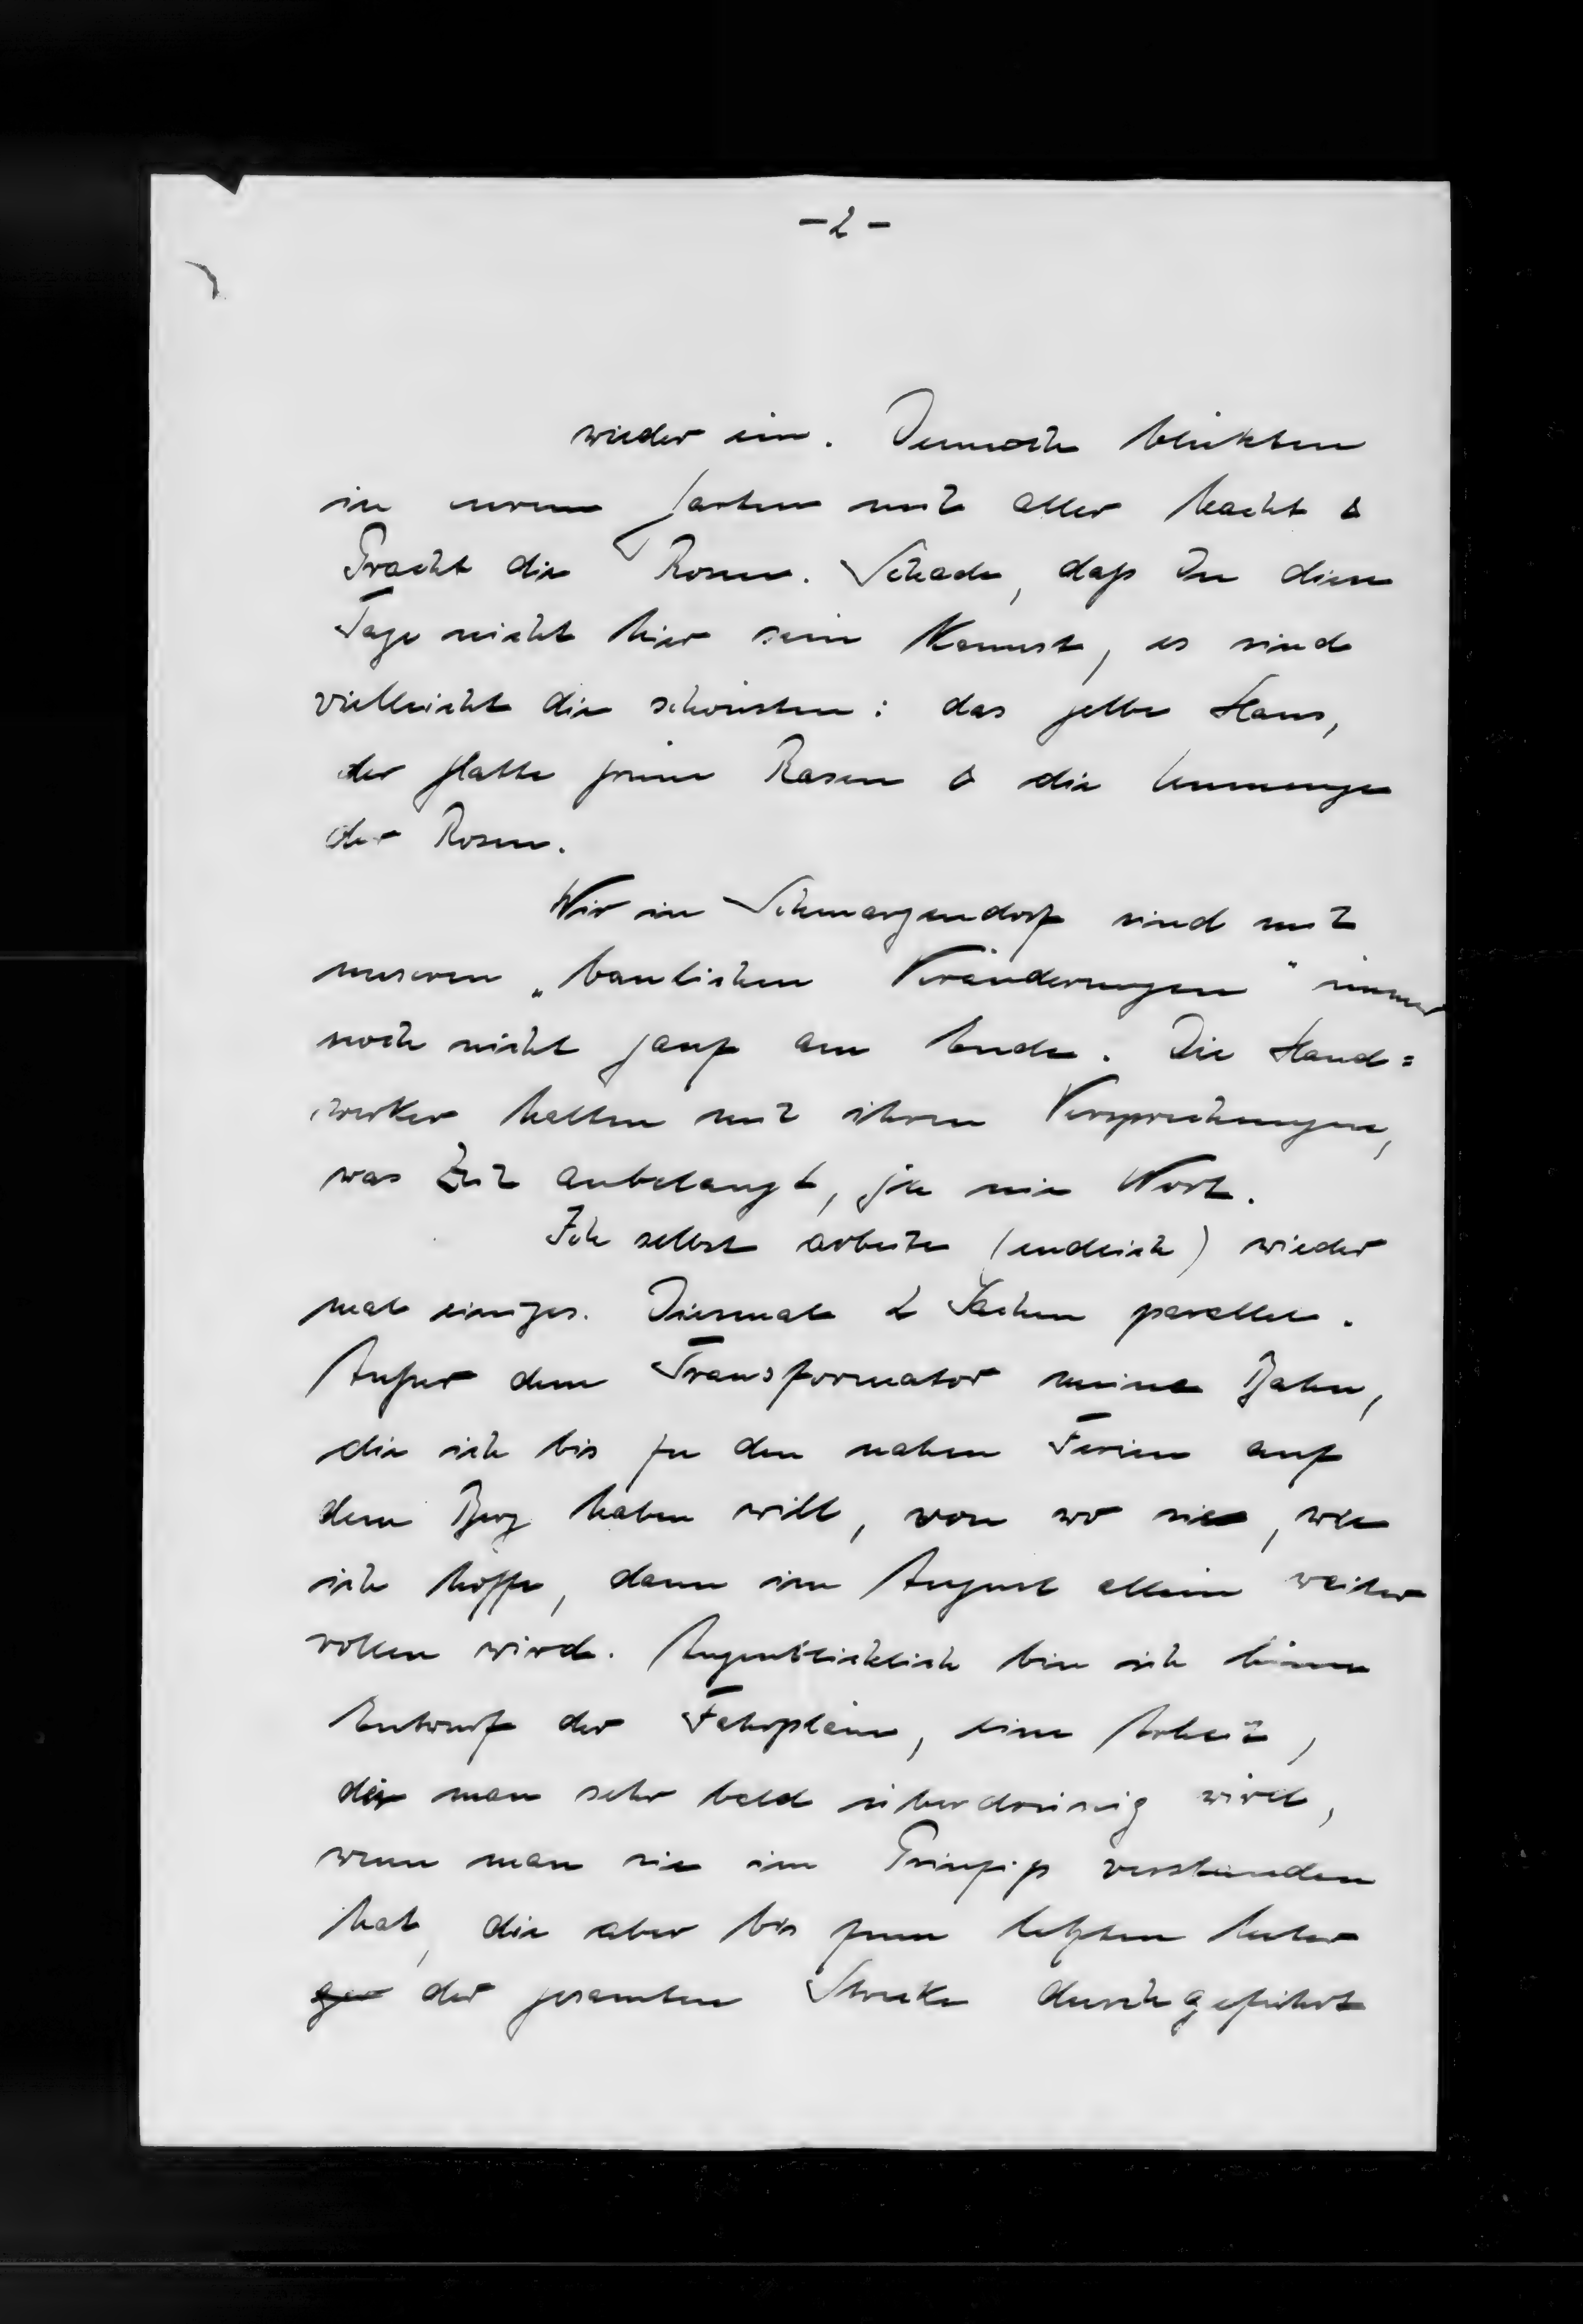 -2-
wieder ein. Dennoch blühten
in unserem Garten mit aller Macht &
Pracht die Rosen. Schade, daß Du diese
Tage nicht hier sein kannst, es sind
vielleicht die schönsten: das gelbe Haus,
der glatte grüne Rasen & die Unmenge
der Rosen.
Wir in Schmargendorf sind mit
unseren „baulichen Veränderungen" immer
noch nicht ganz am Ende. Die Hand=
werker halten mit ihren Versprechungen,
was Zeit anbelangt, ja nie Wort.
Ich selbst arbeite (endlich) wieder
mal einiges. Diesmal 2 Sachen parallel.
Außer dem Transformator meine Bahn,
die ich bis zu den nahen Ferien auf
dem Berg haben will, von wo sie, wie
ich hoffe, dann im August allein weiter
rollen wird. Augenblicklich bin ich beim
Entwurf der Fahrpläne, eine Arbeit,
die man sehr bald überdrüssig wird,
wenn man sie im Prinzip verstanden
hat, die aber bis zum letzten Meter
der gesamten Strecke durchgeführt